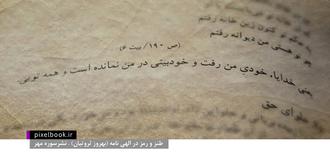 و کنون زین خانه رفتم
و هستی من دیوانه رفتم
(ص ۱۹۰ / بیت ۶)
یعنی خدایا، خودیِ من رفت و خودبینی در من نمانده است و همه تویی.
ای حق
pixelbook.ir
طنز و رمز در الهی نامه (بهروز ثروتیان) - نشر سوره مهر